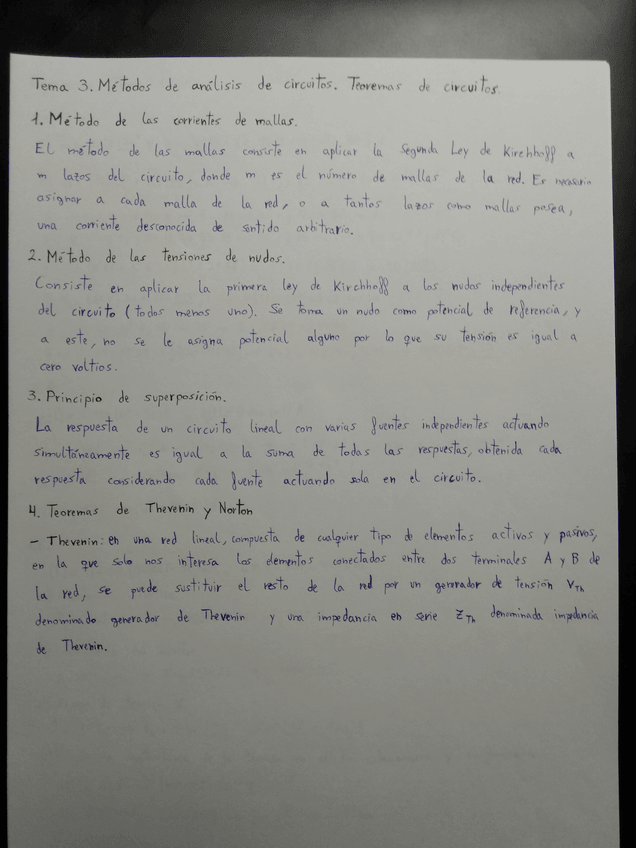 Tema 3. Métodos de análisis de circuitos. Teoremas de circuitos.
1. Método de las corrientes de mallas.
El método de las mallas consiste en aplicar la Segunda Ley de Kirchhoff a
m lazos del circuito, donde m es el número de mallas de la red. Es necesario
asignar a cada malla de la red, o a tantos lazos como mallas posea,
una corriente desconocida de sentido arbitrario.
2. Método de las tensiones de nudos.
Consiste en aplicar la primera ley de Kirchhoff a los nudos independientes
del circuito (todos menos uno). Se toma un nudo como potencial de referencia, y
a este, no se le asigna potencial alguno por lo que su tensión es igual a
cero voltios.
3. Principio de superposición.
La respuesta de un circuito lineal con varias fuentes independientes actuando
simultáneamente es igual a la suma de todas las respuestas, obtenida cada
respuesta considerando cada fuente actuando sola en el circuito.
4. Teoremas de Thevenin y Norton
- Thevenin: en una red lineal, compuesta de cualquier tipo de elementos activos y pasivos,
en la que solo nos interesa los elementos conectados entre dos terminales A y B de
la red, se puede sustituir el resto de la red por un generador de tensión VTh
denominado generador de Thevenin y una impedancia en serie ZTh denominada impedancia
de Thevenin.